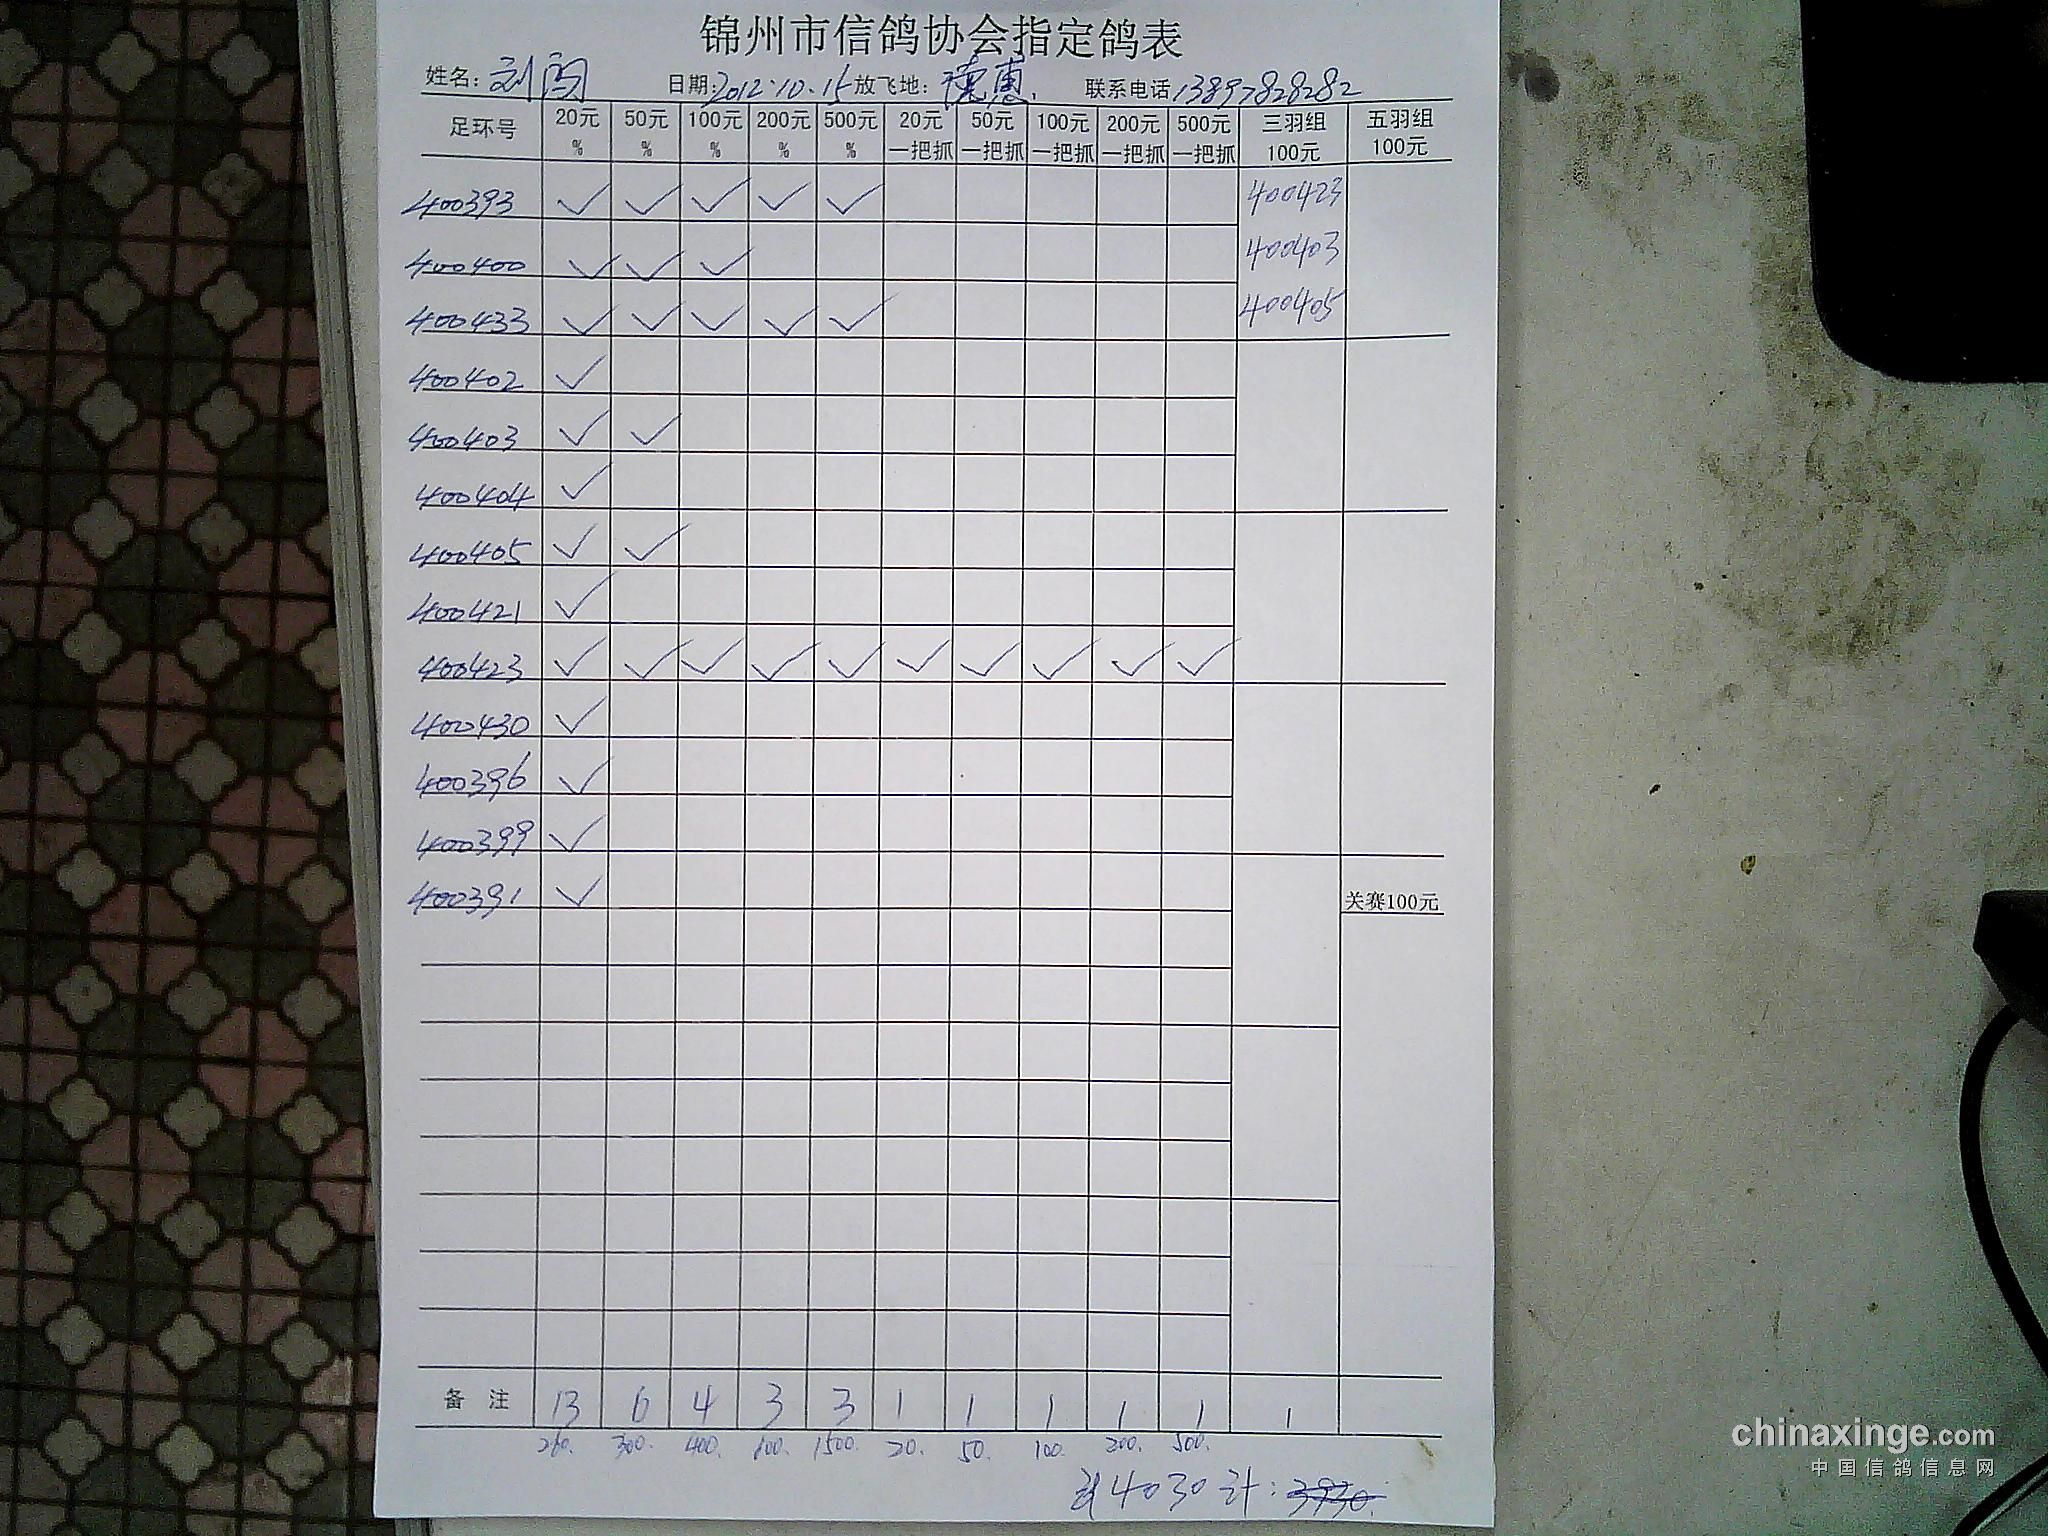 锦州市信鸽协会指定鸽表
姓名：刘闯 日期：2012.10.15 放飞地：德惠. 联系电话 13897828282
足环号 20元% 50元% 100元% 200元% 500元% 20元一把抓 50元一把抓 100元一把抓 200元一把抓 500元一把抓 三羽组100元 五羽组100元
400393 ✓ ✓ ✓ ✓ ✓ 400423
400400 ✓ ✓ ✓ 400403
400433 ✓ ✓ ✓ ✓ ✓ 400405
400402 ✓
400403 ✓ ✓
400404 ✓
400405 ✓ ✓
400421 ✓
400423 ✓ ✓ ✓ ✓ ✓ ✓ ✓ ✓ ✓ ✓
400430 ✓
400396 ✓
400399 ✓
400391 ✓
关赛100元
备注 13 6 4 3 3 1 1 1 1 1 1
260. 300. 400. 600. 1500. 20. 50. 100. 200. 500.
4030 计: 3930.
chinaxinge.com
中国信鸽信息网